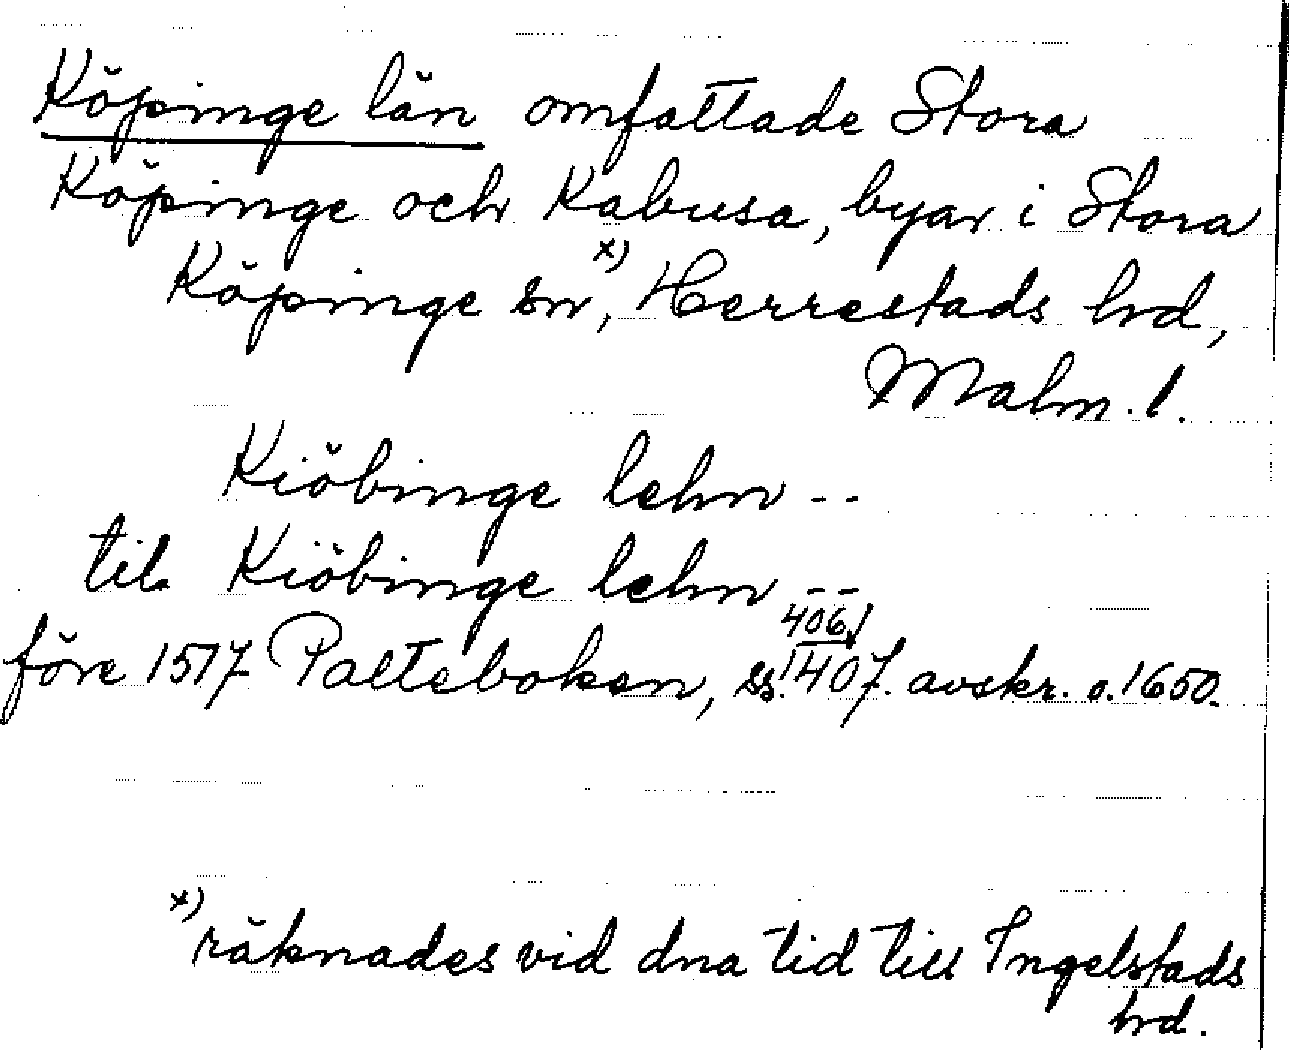 Köpinge län omfattade Stora
Köpinge och Kabusa, byar i Stora
Köpinge sn x), Herrestads hd,
Malm. l.
Kiöbinge lehn --
til Kiöbinge lehn --
406,
före 1517 Palteboken, ss. 407. avskr. o. 1650.
x) räknades vid dna tid till Ingelstads
hd.